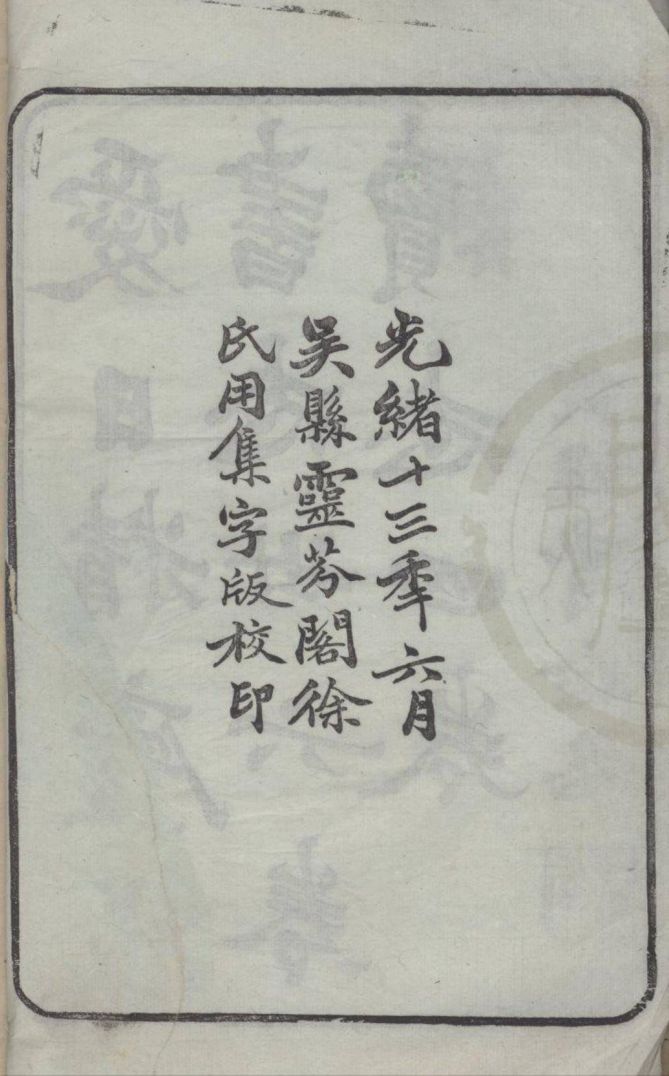 光緒十三秊六月
吳縣靈芬閣徐
氏用集字版校印